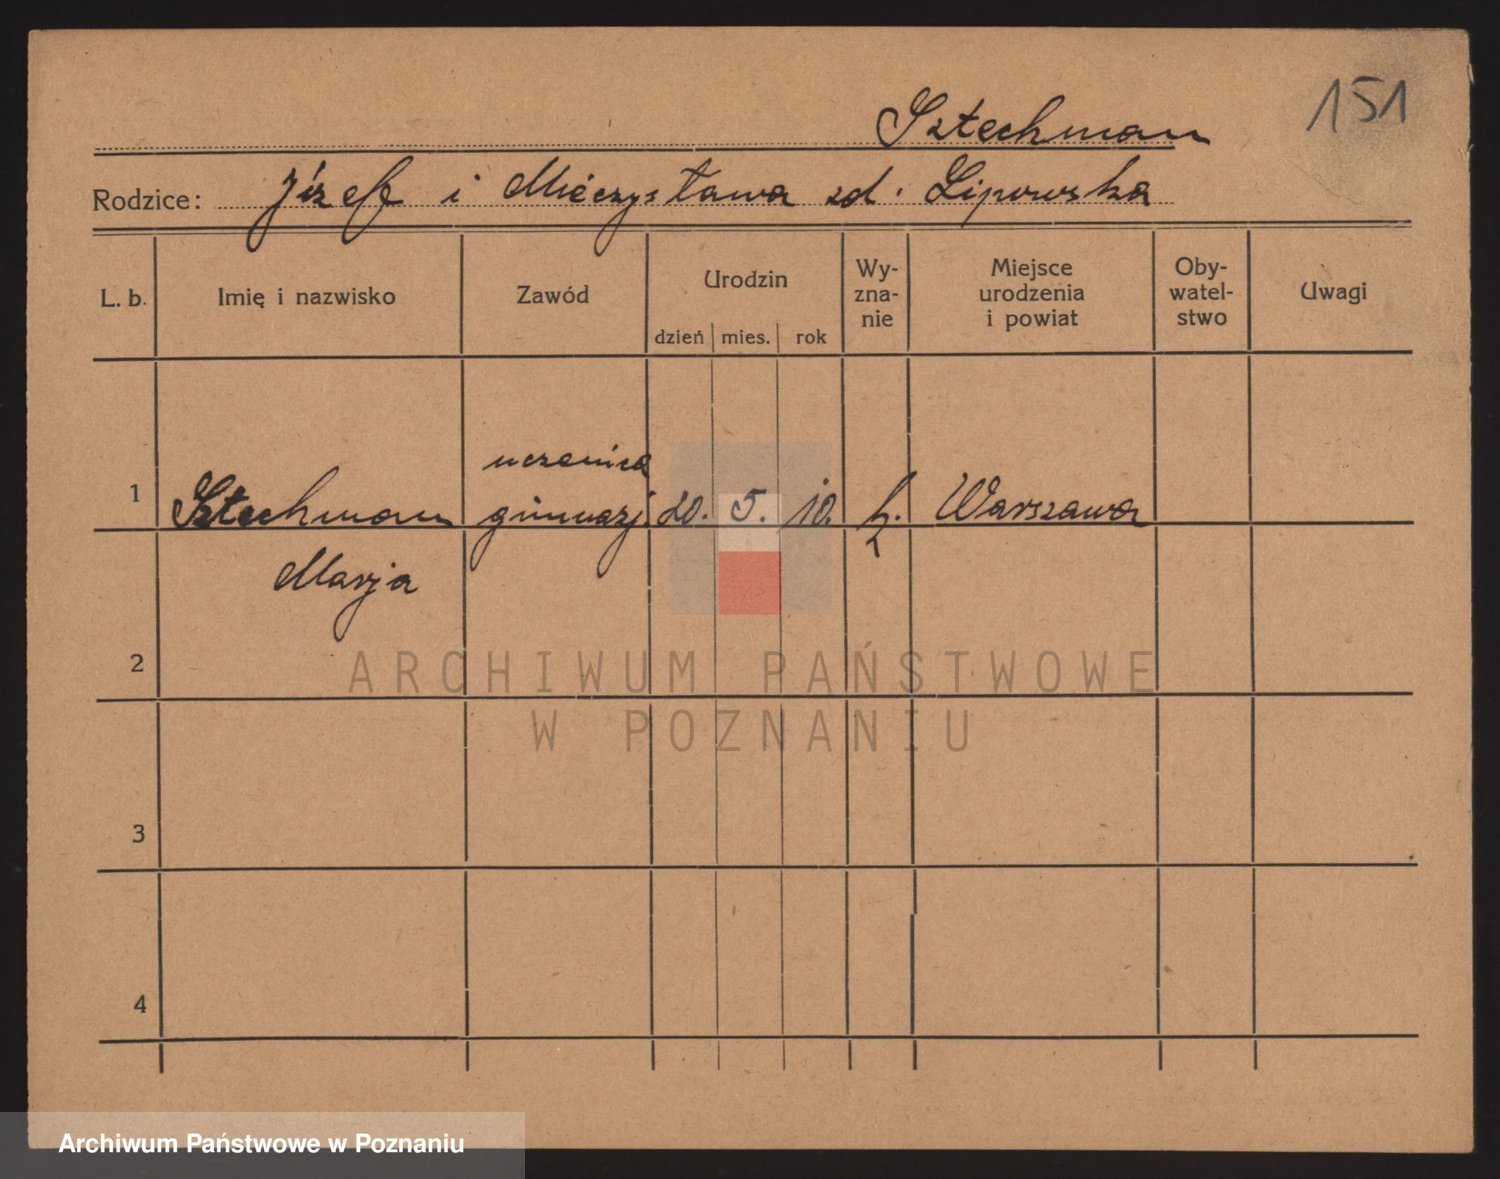 151
Sztechman
Rodzice: Józef i Mieczysława zd. Lipowska
L. b. Imię i nazwisko Zawód Urodzin dzień mies. rok Wy- zna- nie Miejsce urodzenia i powiat Oby- watel- stwo Uwagi
uczenica
1 Sztechman gimnazj. 20. 5. 10. k. Warszawa
Marja
2
ARCHIWUM PAŃSTWOWE
W POZNANIU
3
4
Archiwum Państwowe w Poznaniu